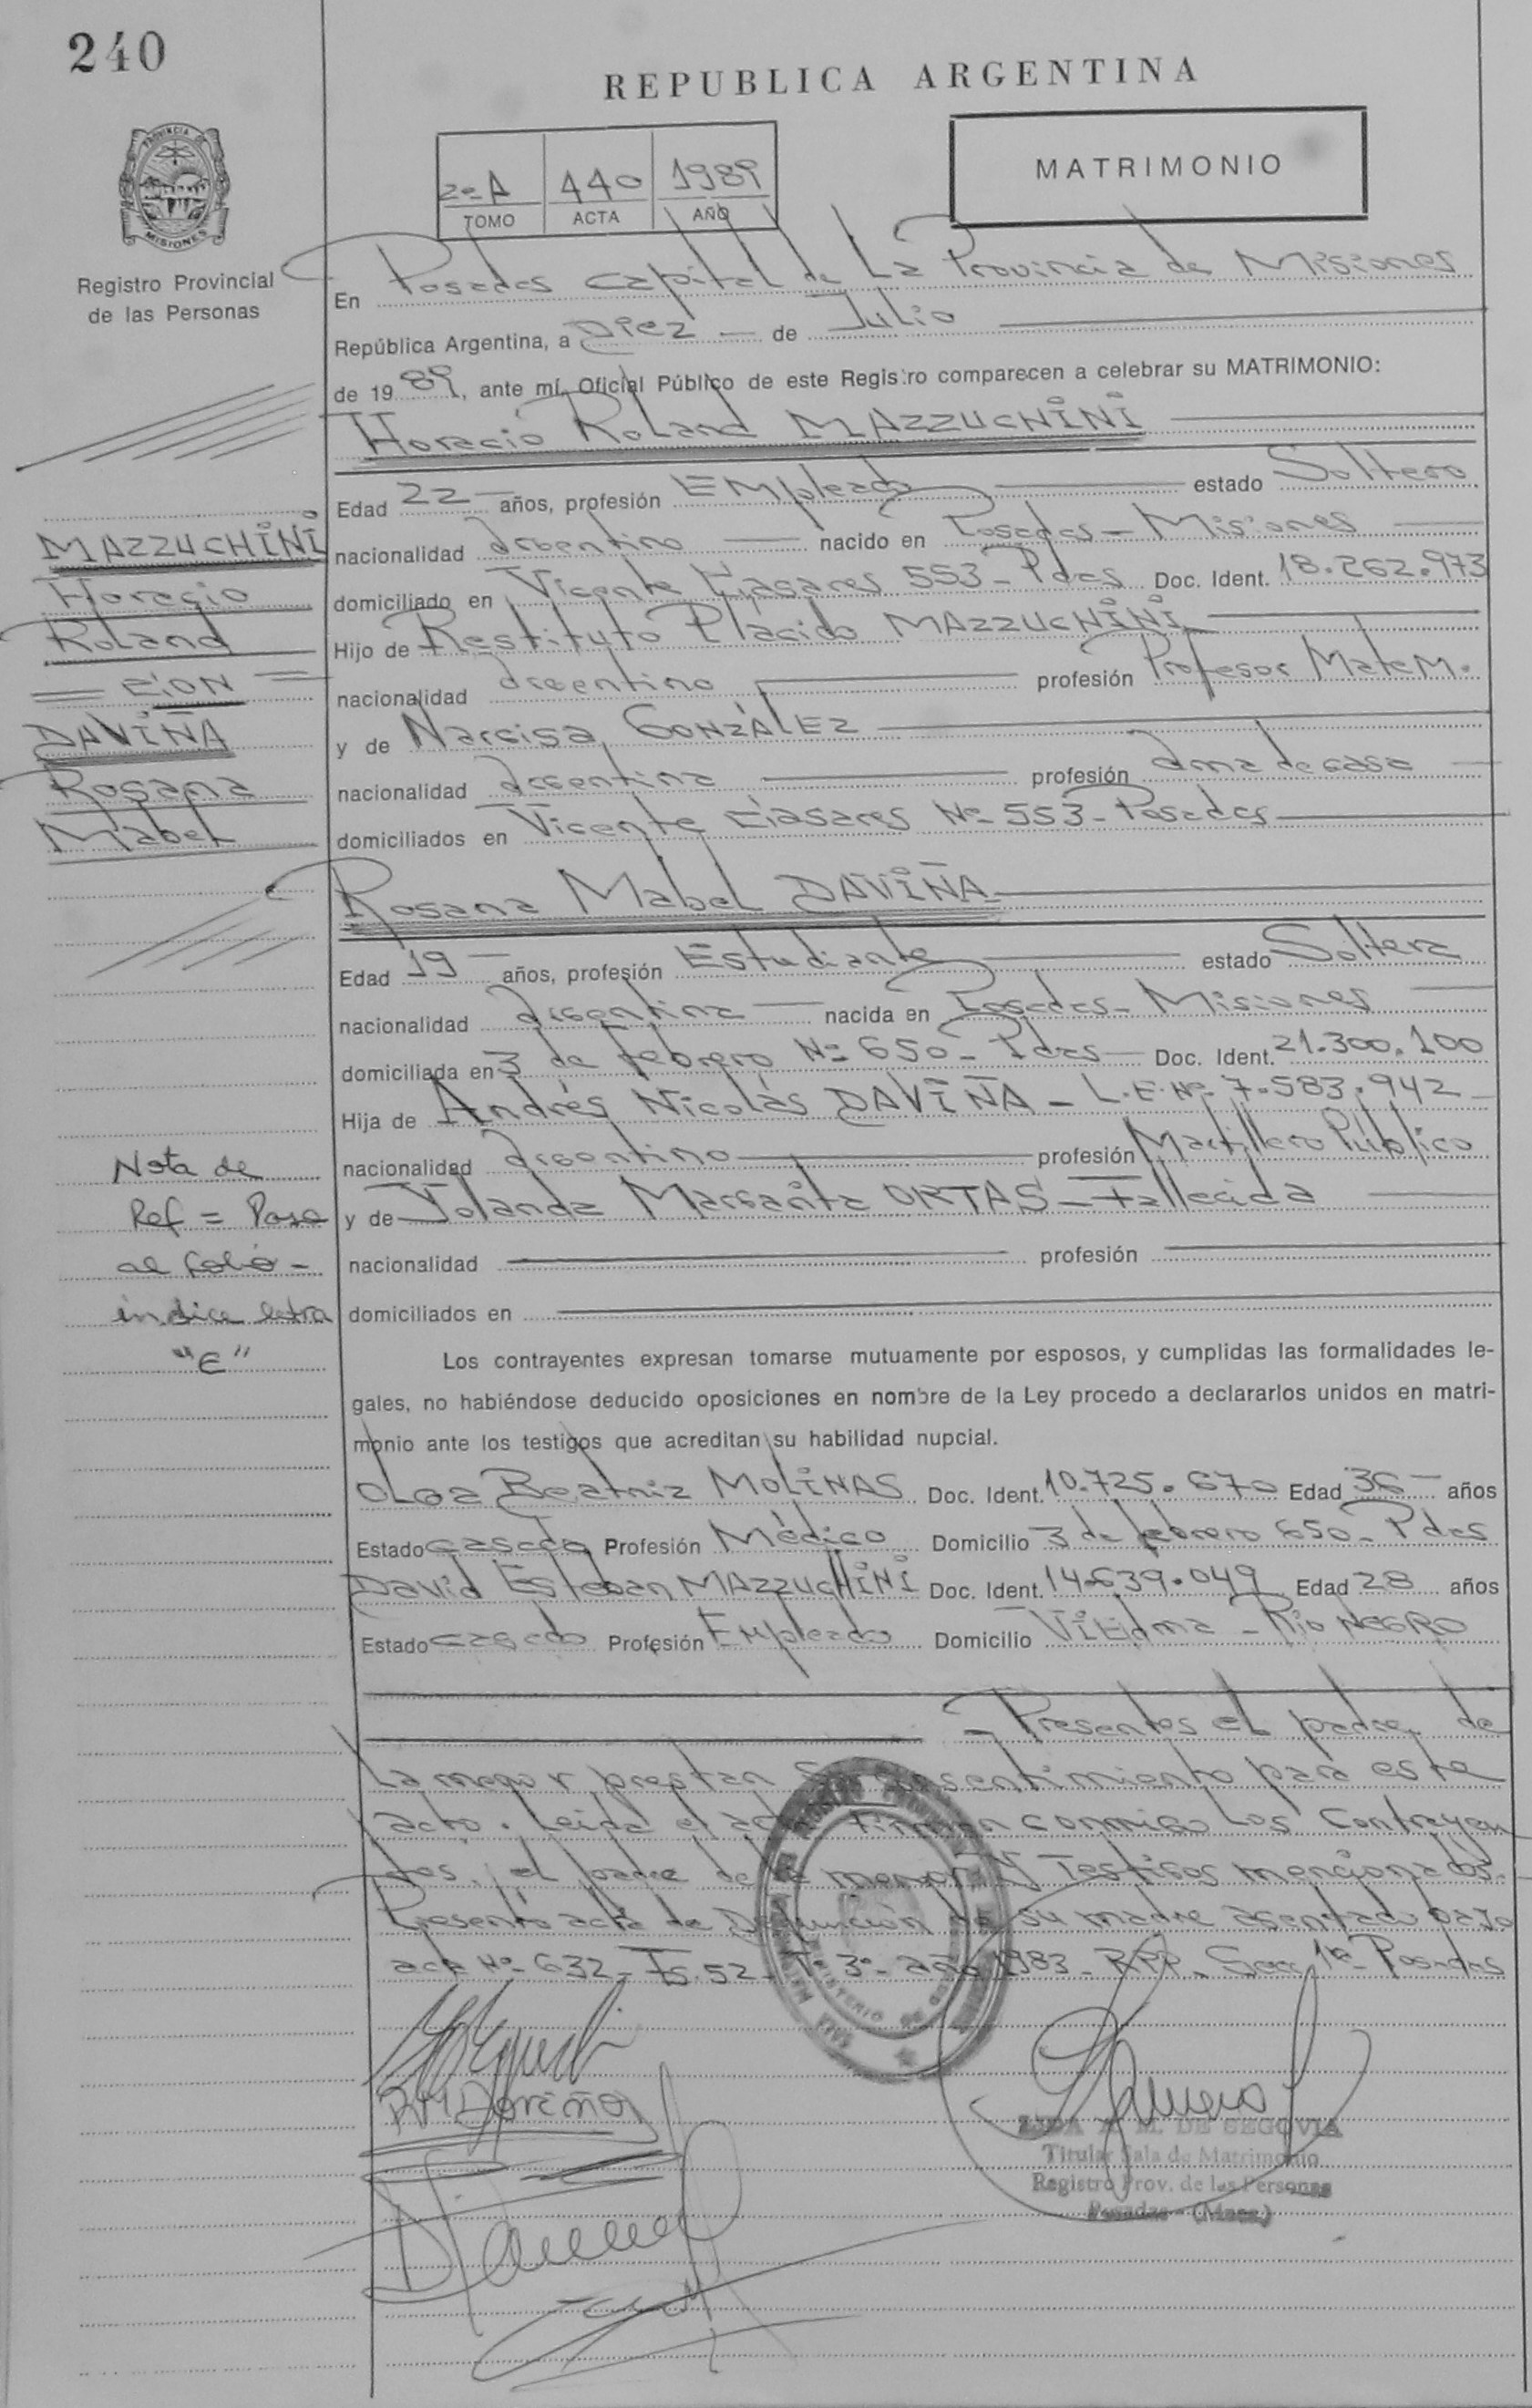 240
REPUBLICA ARGENTINA
PROVINCIA DE
MISIONES
Registro Provincial
de las Personas
2º A 440 1989
TOMO ACTA AÑO
MATRIMONIO
En Posadas Capital de La Provincia de Misiones
República Argentina, a Diez de Julio
de 1989, ante mí, Oficial Público de este Registro comparecen a celebrar su MATRIMONIO:
Horacio Roland MAZZUCHINI
Edad 22 años, profesión Empleado estado Soltero
nacionalidad argentino nacido en Posadas - Misiones
domiciliado en Vicente 553 - Pdas Doc. Ident. 18.262.973
Hijo de Restituto Plácido MAZZUCHINI
nacionalidad argentino profesión Profesor Matem.
y de Narcisa GONZÁLEZ
nacionalidad argentina profesión ama de casa
domiciliados en Vicente Nº 553 - Posadas
Rosana Mabel DAVIÑA
Edad 19 años, profesión Estudiante estado Soltera
nacionalidad argentina nacida en Posadas - Misiones
domiciliada en 3 de febrero Nº 650 - Pdas Doc. Ident. 21.300.100
Hija de Andrés Nicolás DAVIÑA - L.E.Nº 7.583.942
nacionalidad argentino profesión Martillero Público
y de Yolanda Margarita ORTAS - Fallecida
nacionalidad profesión
domiciliados en
MAZZUCHINI
Horacio
Roland
CON
DAVIÑA
Rosana
Mabel
Nota de
Ref = Pase
al folio -
indice letra
"E"
Los contrayentes expresan tomarse mutuamente por esposos, y cumplidas las formalidades le-
gales, no habiéndose deducido oposiciones en nombre de la Ley procedo a declararlos unidos en matri-
monio ante los testigos que acreditan su habilidad nupcial.
Olga Beatriz MOLINAS Doc. Ident. 10.725.670 Edad 36 años
Estado casada Profesión Médico Domicilio 3 de febrero 650 - Pdas
David Esteban MAZZUCHINI Doc. Ident. 14.639.049 Edad 28 años
Estado casado Profesión Empleado Domicilio Viedma - Río NEGRO
Presentes el padre de
La menor prestan su consentimiento para este
acto. Leida el acta firman conmigo Los Contrayen
tes, el padre de la menor y Testigos mencionados.
Presentó acta de Defunción de su madre asentado bajo
acta Nº 632 - Fs. 52 - Tº 3º - año 1983 - RPP - Secc 1ª Posadas
DE SEGOVIA
Titular Sala de Matrimonio
Registro Prov. de las Personas
Posadas - (Mnes.)